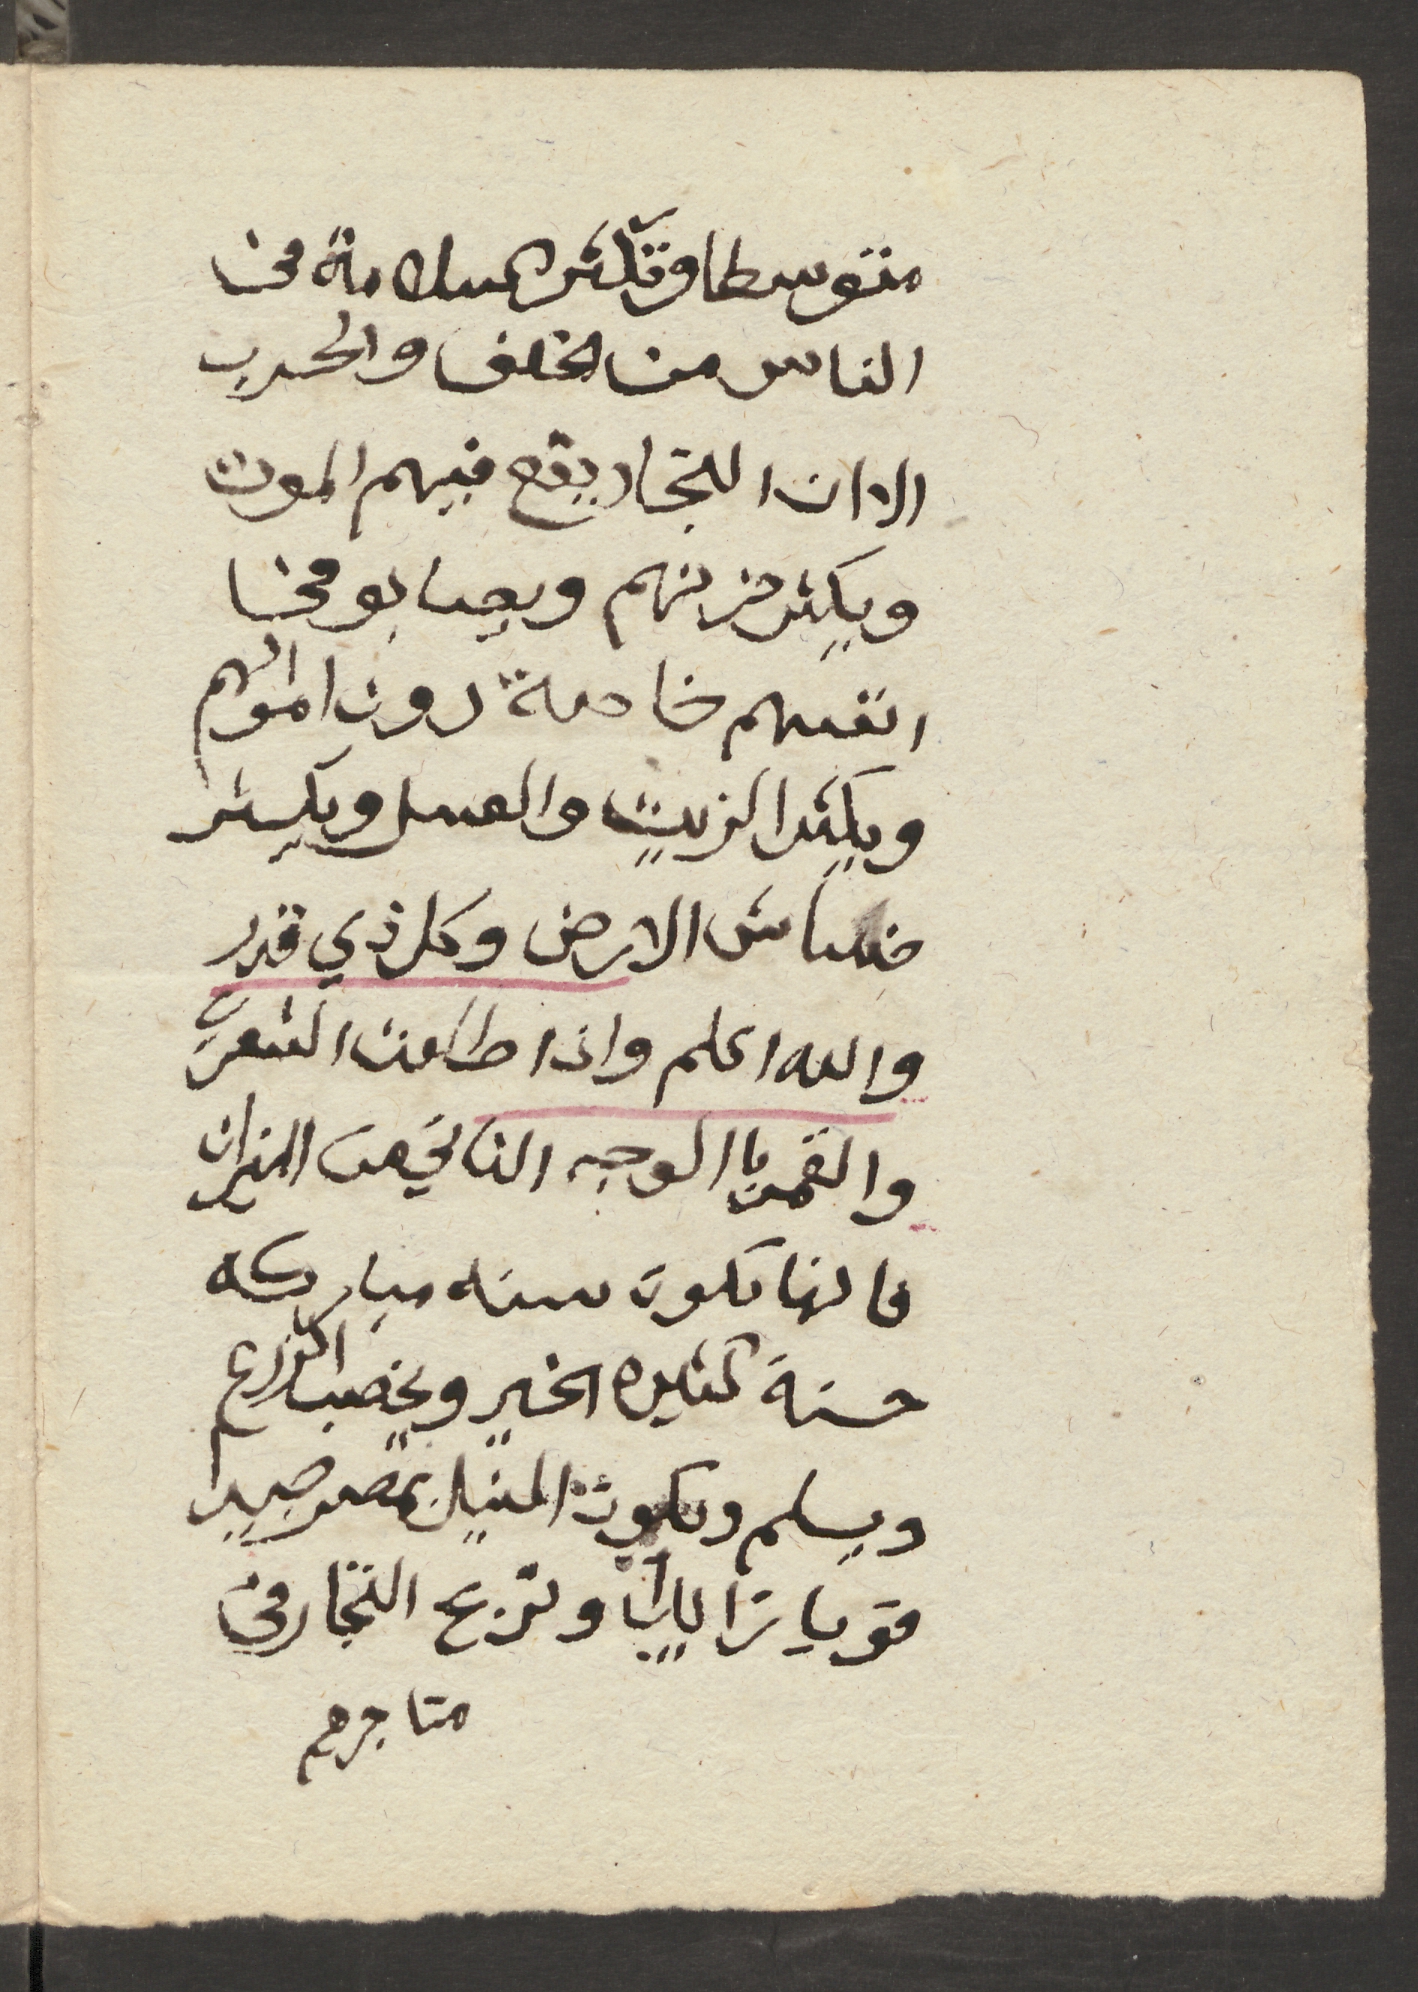 متوسطا وتكثر السلامة في
الناس من الخلف والحرب
الا ان التجار يقع فيهم الموت
ويكثر حزنهم ويصابو في
انفسهم خاصة دون اموالهم
ويكثر الزيت والعسل ويكثر
خساش الارض وكل ذي قدر
والله اعلم واذا طلعت الشعري
والقمر با الوجه الثاني من الميزان
فانها تكون سنه مباركه
حسنة كثيره الخير ويخصب الزرع
ويسلم ويكون النيل بمصر جيدا
قويا زايدا وتربح التجار في
متاجرهم